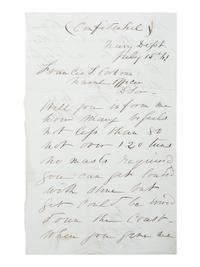 (Confidential)
Navy Dept
July 15th
Francis S.
Naval Officer
D Sir
Will you inform me
how many vessels
not less than 80
not over 120 tuns
no masts required
you can get loaded
with stone but
yet could be towed
down the coast.
When you give me